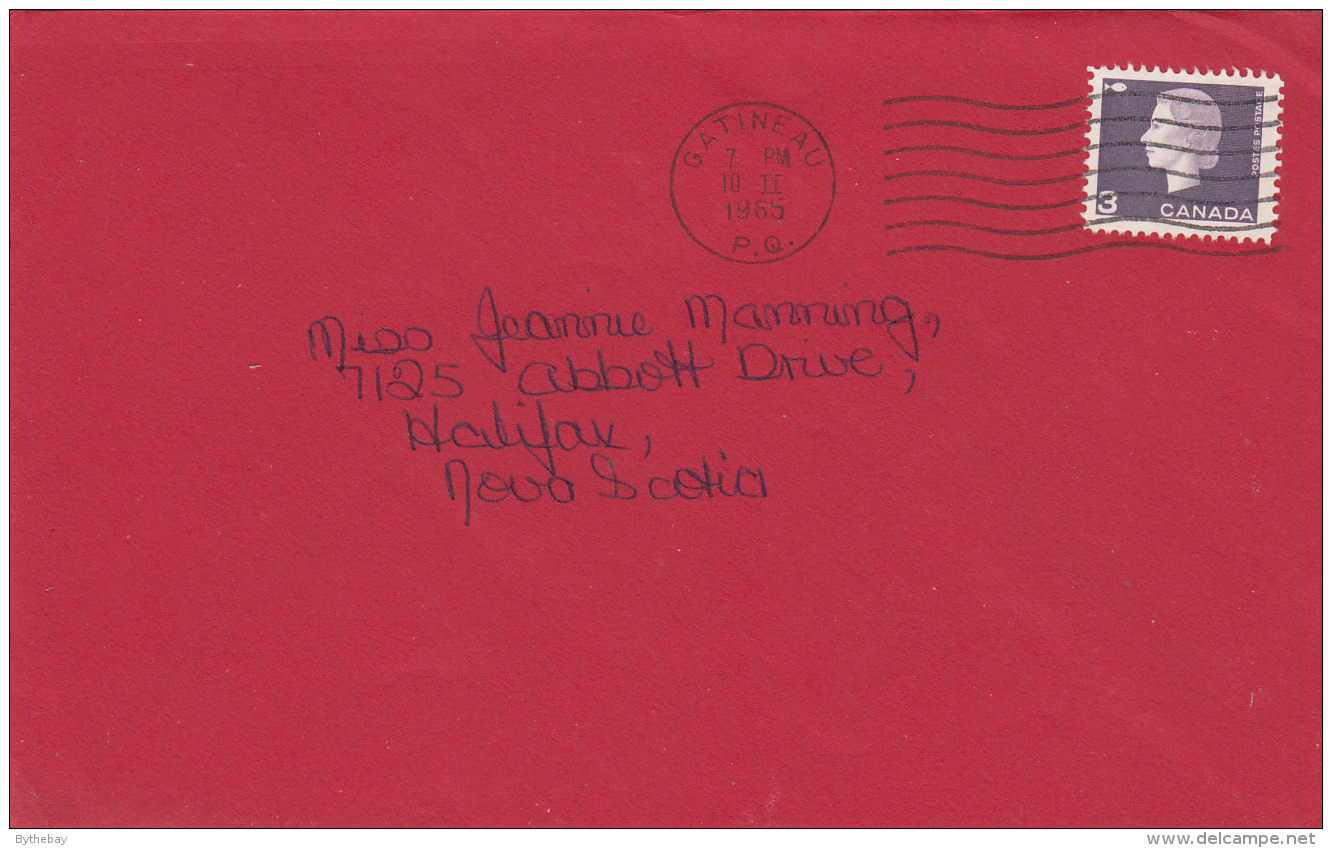 GATINEAU
7 PM
10 II
1965
P.Q.
POSTES POSTAGE
3 CANADA
Miss Jeannie Manning,
7125 Abbott Drive,
Halifax,
Nova Scotia
Bythebay
www.delcampe.net